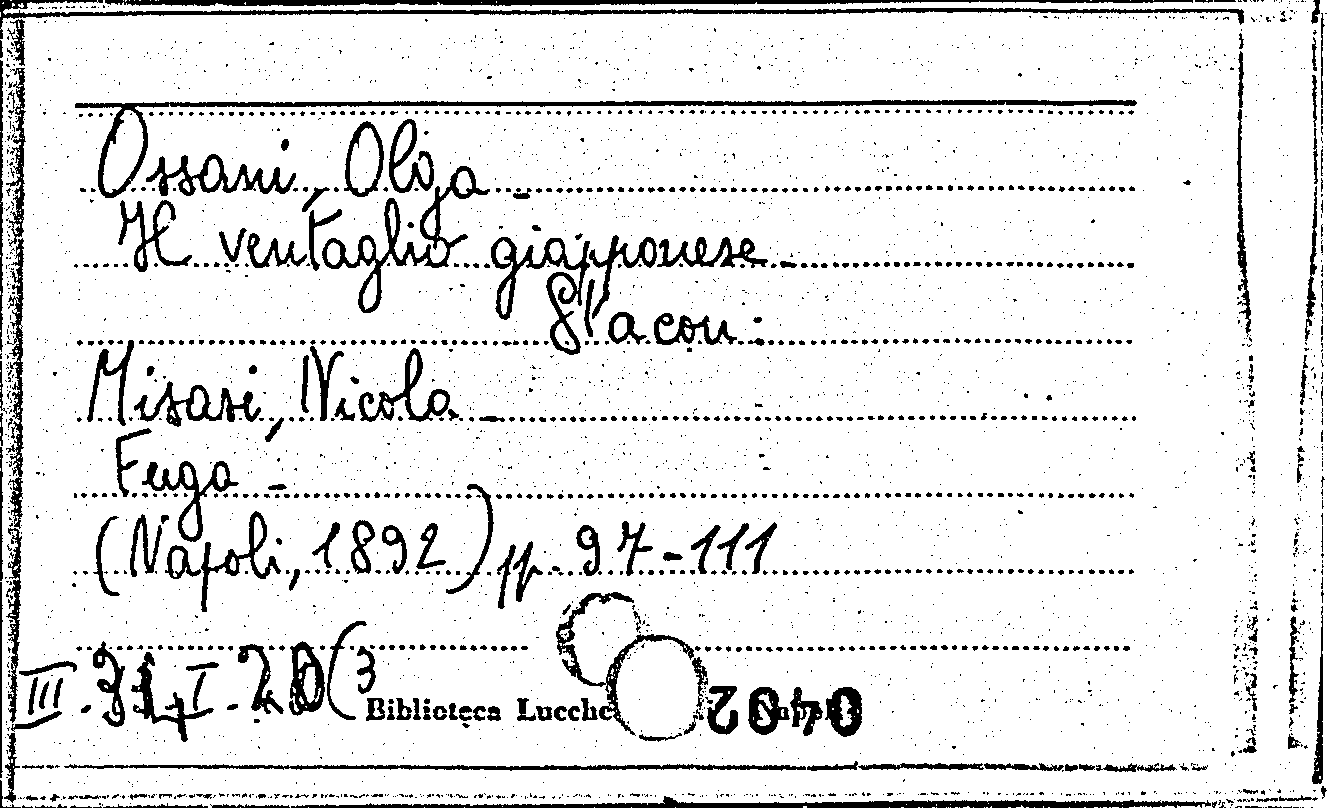 Ossani, Olga -
Il ventaglio giapponese -
Sta con:
Misasi, Nicola -
Fuga -
(Napoli, 1892) pp. 97-111
III. I (3
Biblioteca Lucche